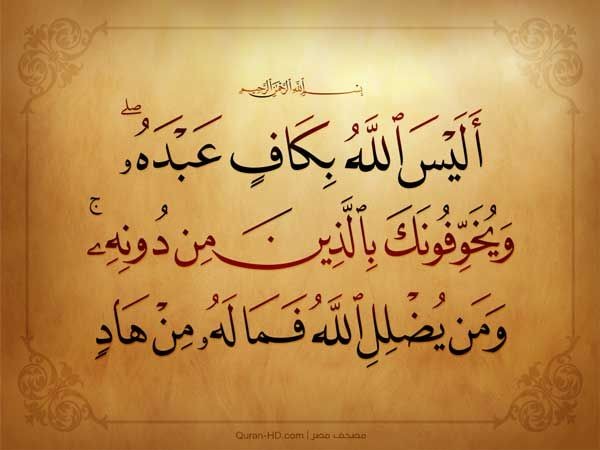 بِسْمِ ٱللَّهِ ٱلرَّحْمَٰنِ ٱلرَّحِيمِ
أَلَيْسَ ٱللَّهُ بِكَافٍ عَبْدَهُۥ ۖ
وَيُخَوِّفُونَكَ بِٱلَّذِينَ مِن دُونِهِۦ ۚ
وَمَن يُضْلِلِ ٱللَّهُ فَمَا لَهُۥ مِنْ هَادٍ
Quran-HD.com | مصحف مصر